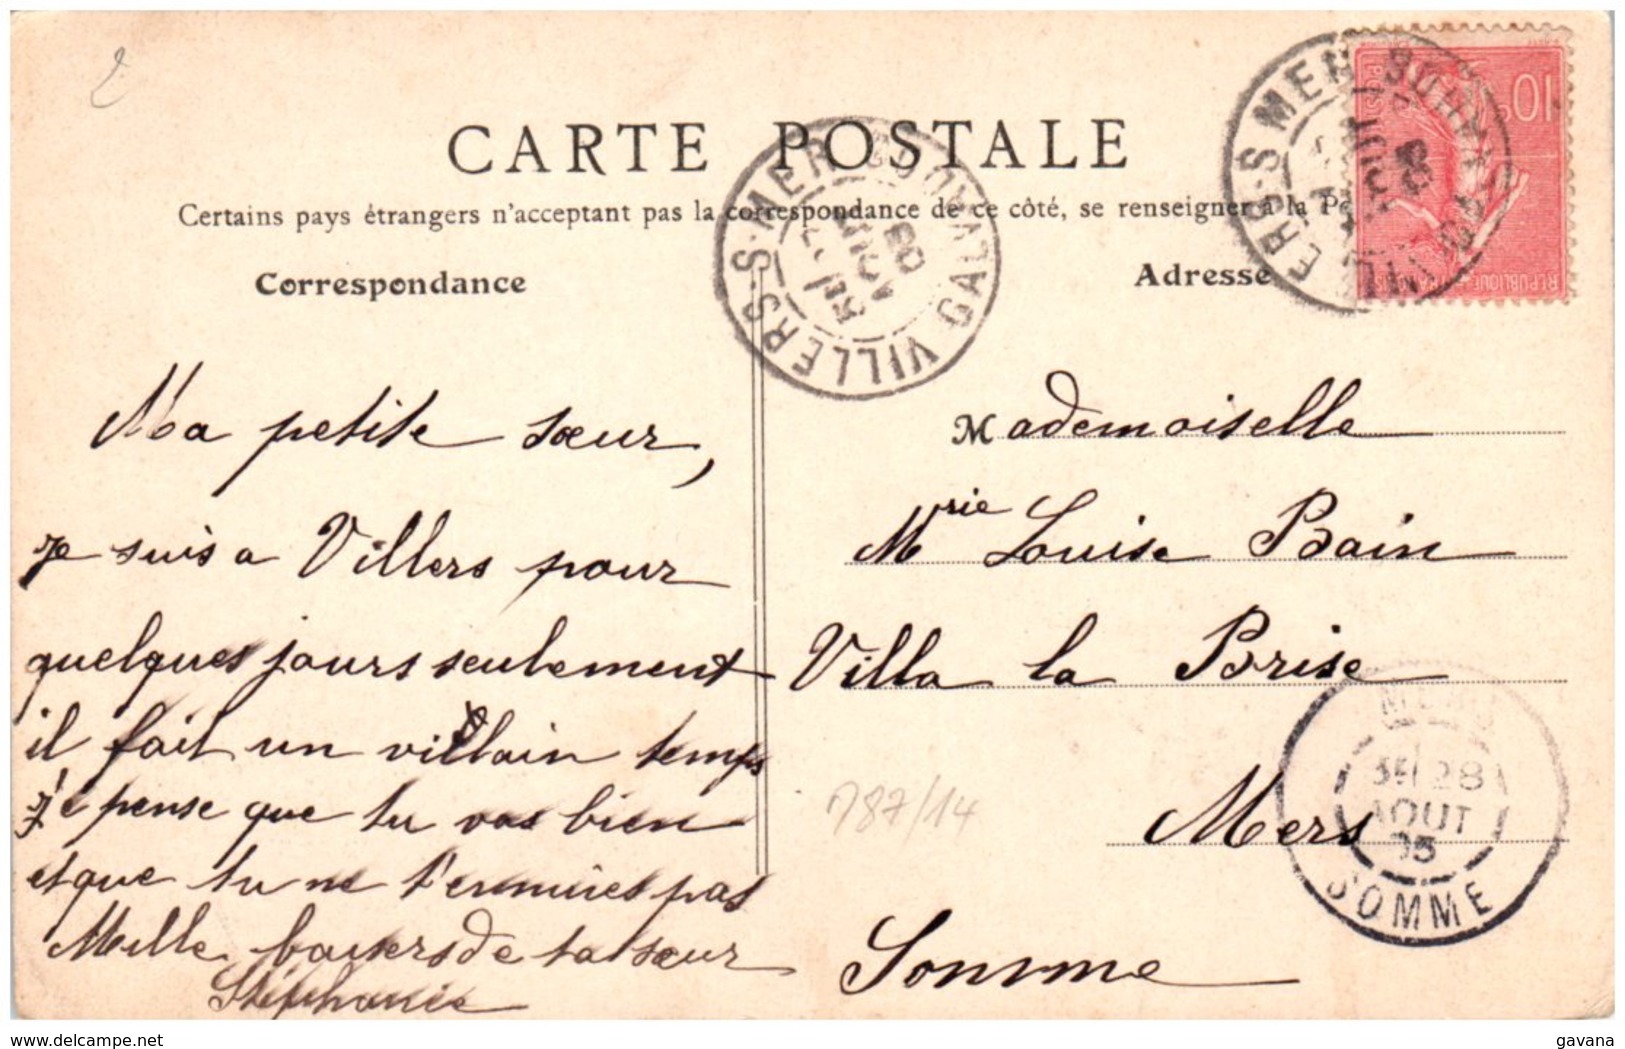 CARTE POSTALE
Certains pays étrangers n'acceptent pas la correspondance de ce côté, se renseigner à la
Correspondance
Adresse
Ma petite sœur,
je suis a Villers pour
quelques jours seulement
il fait un villain temps
je pense que tu vas bien
et que tu ne t'ennuies pas
Mille baisers de ta sœur
Stéphanie
Mademoiselle
Mrie Louise Bain
Villa la Brise
Mers
Somme
787/14
10c
VILLERS-S-MER
CALVADOS
AOUT
VILLERS-S-MER
CALVADOS
AOUT
MERS
28
AOUT
05
SOMME
delcampe.net
gavana